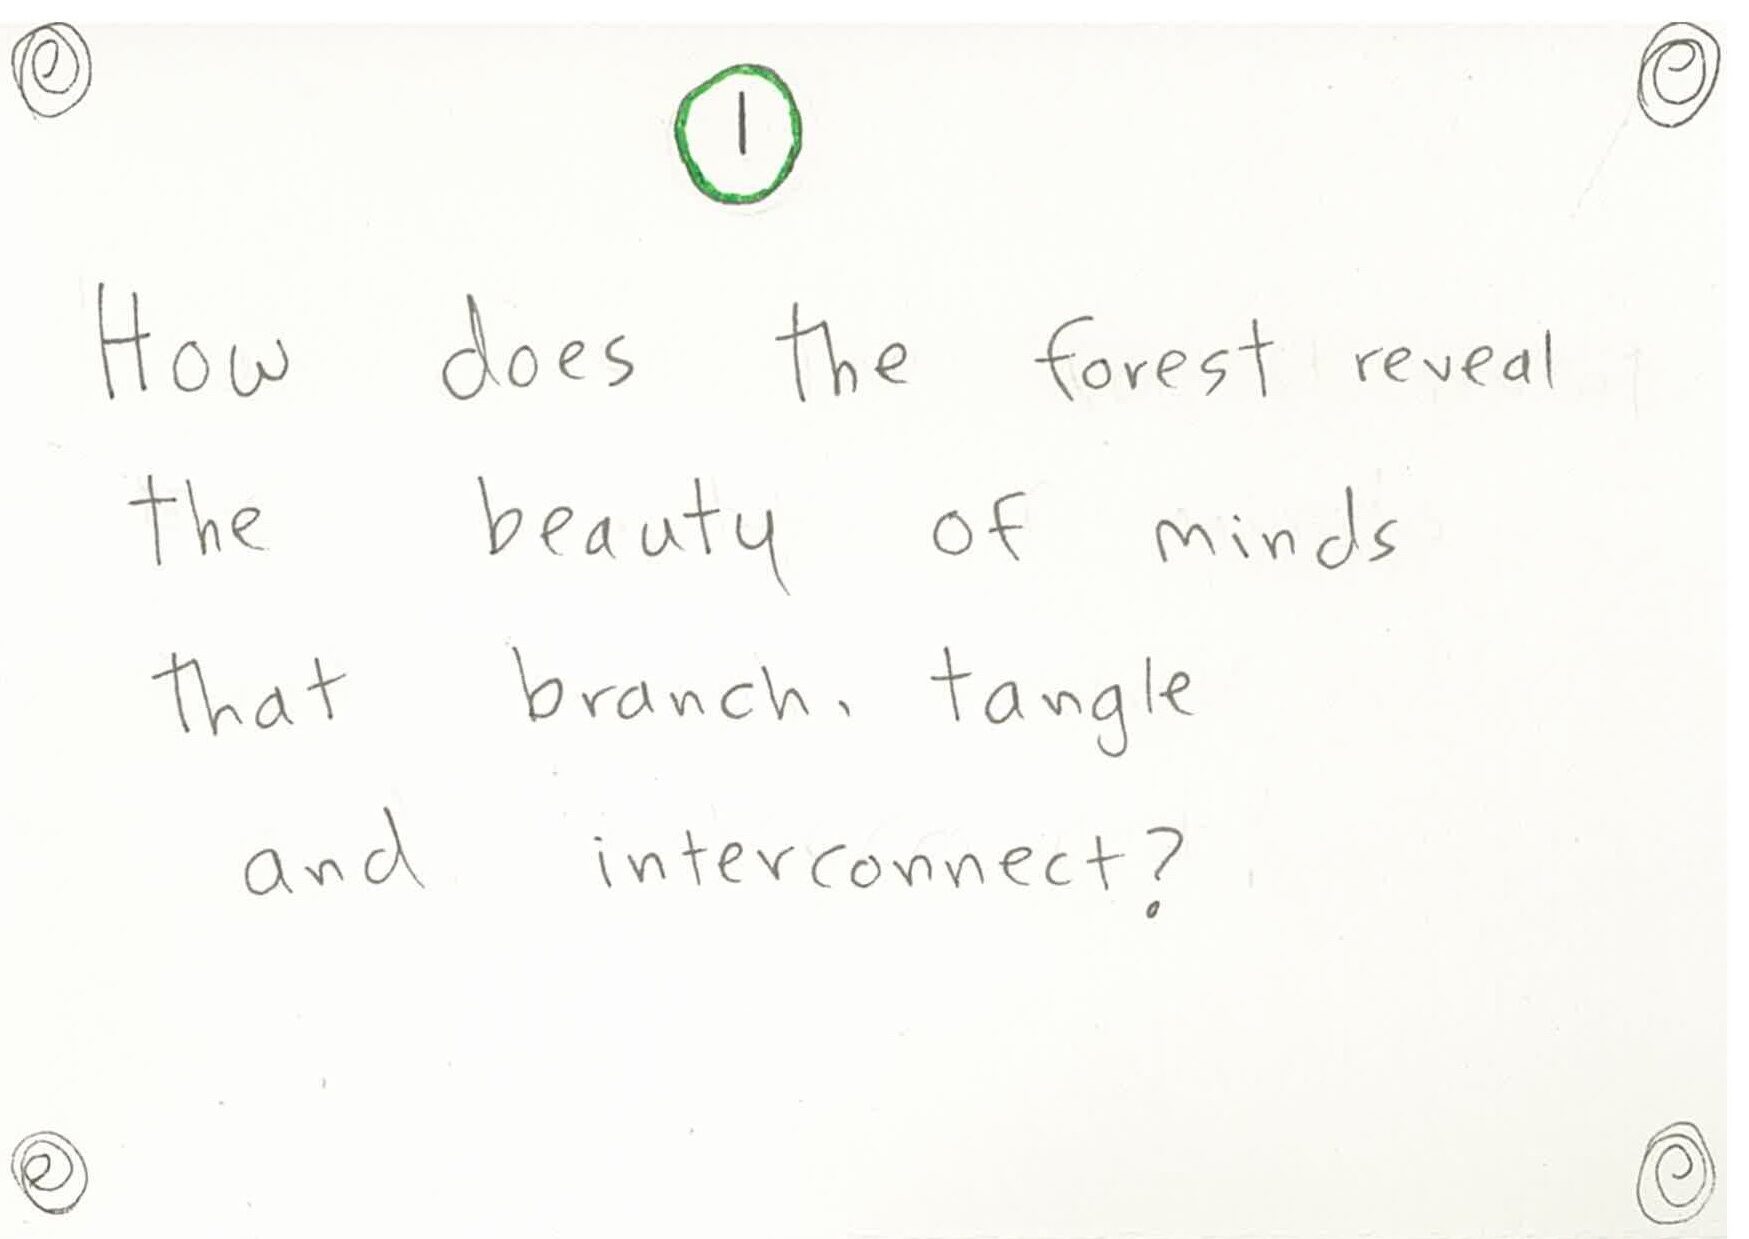 1
How does the forest reveal
the beauty of minds
that branch, tangle
and interconnect?